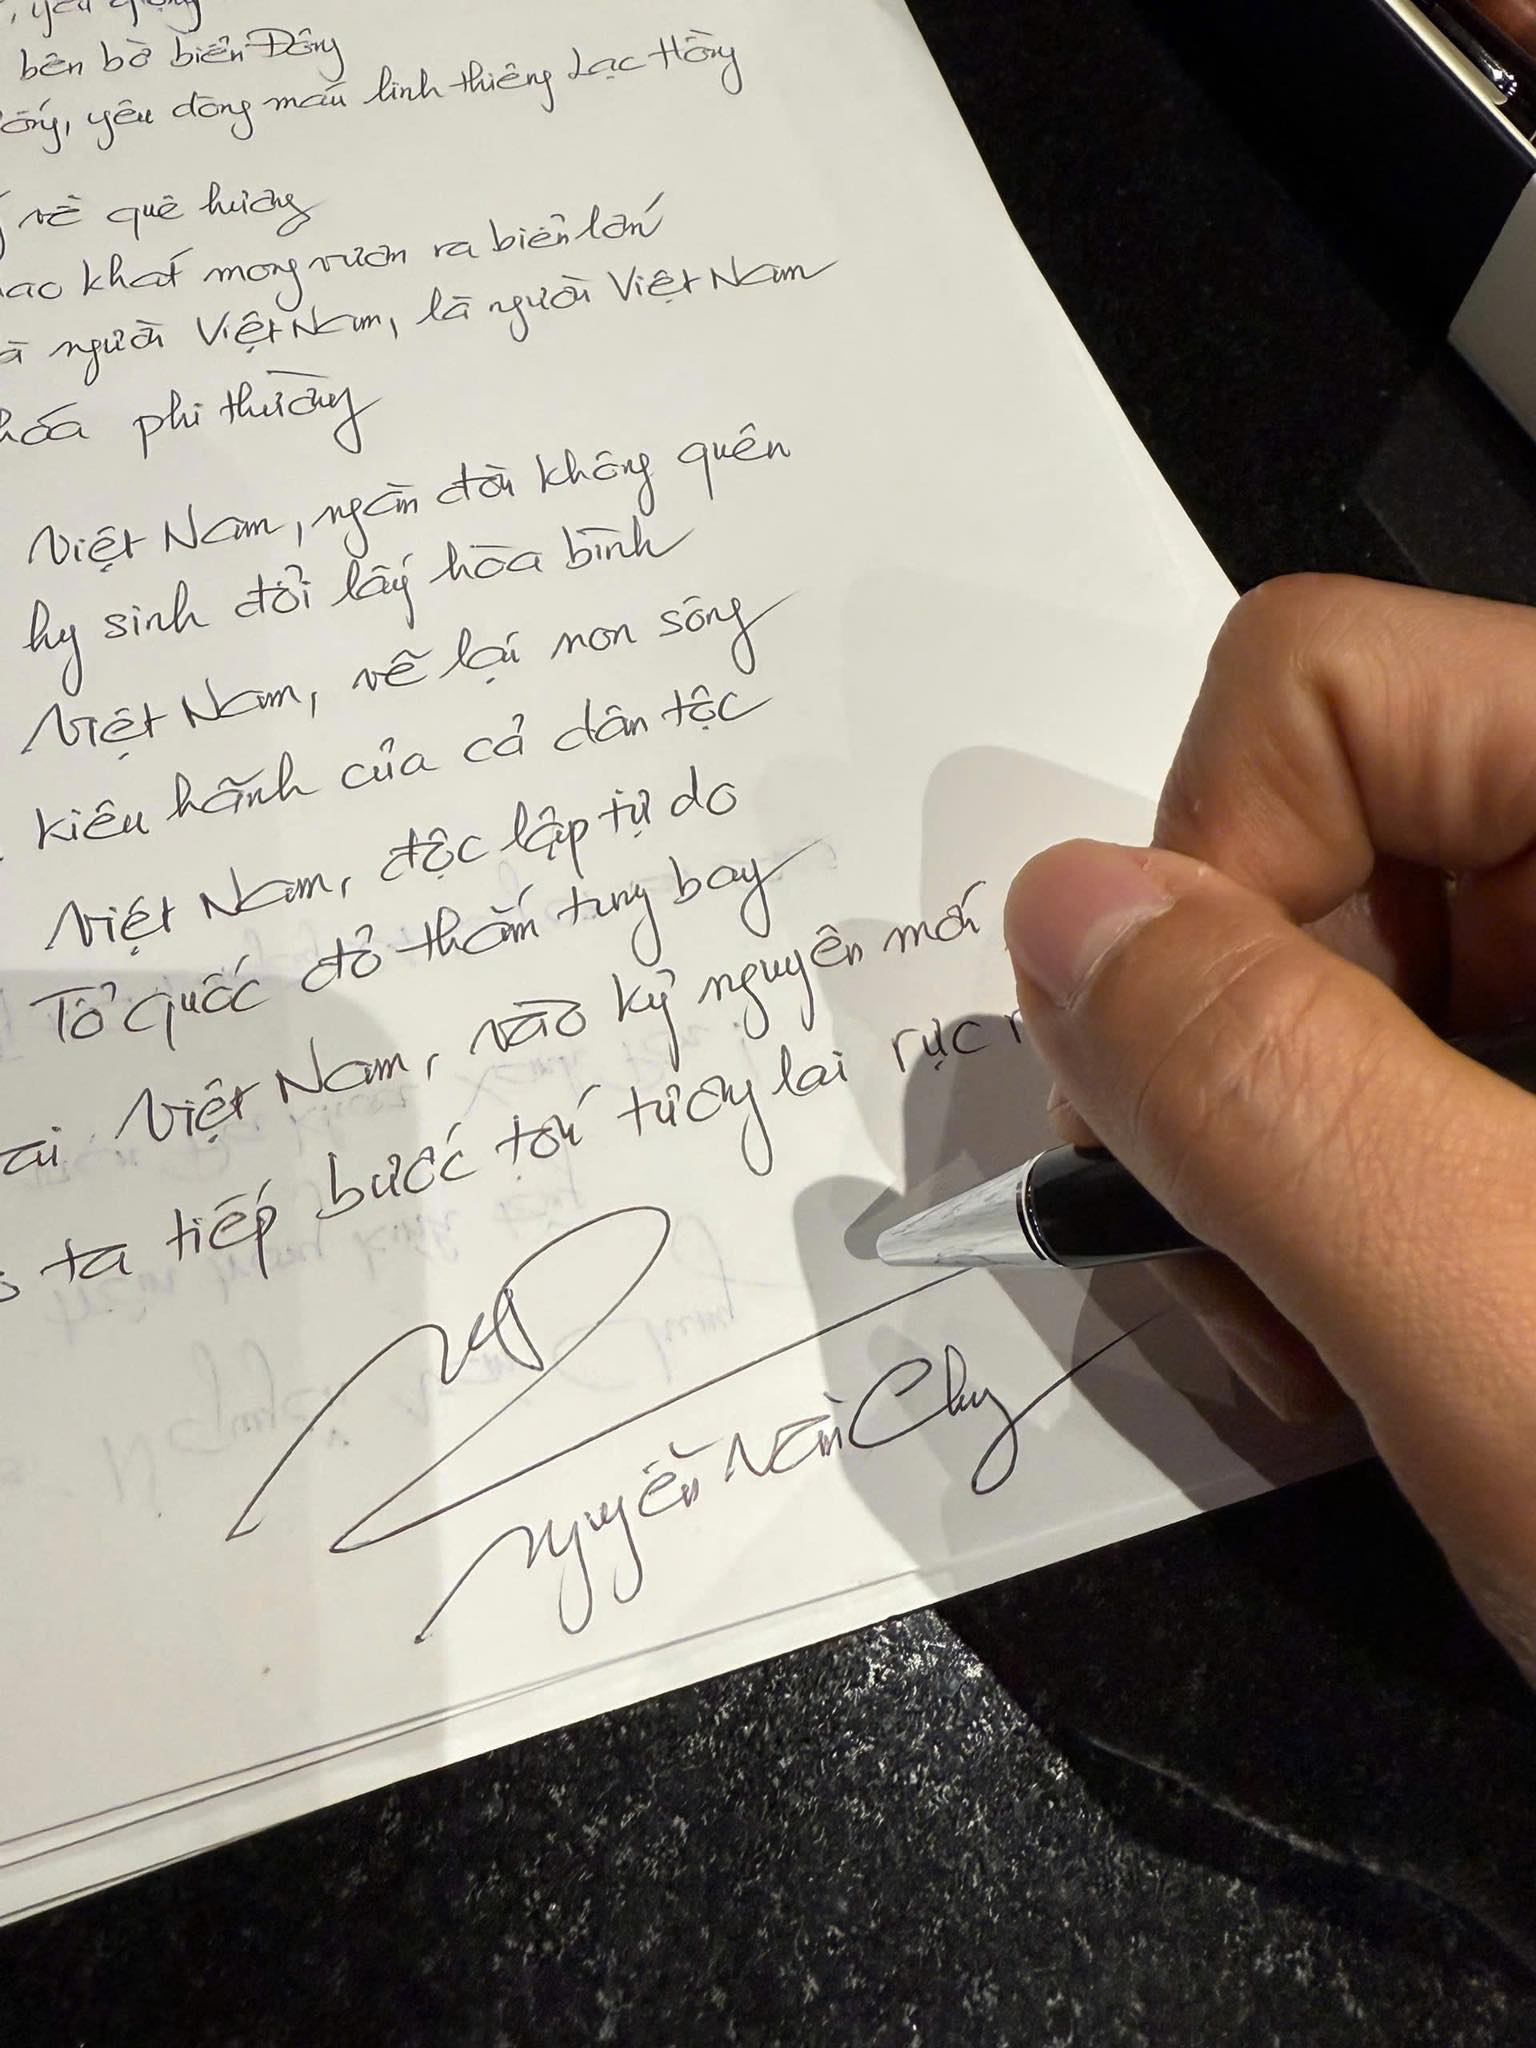 yêu
bên bờ biển Đông
yêu dòng máu linh thiêng Lạc Hồng
về quê hương
khát mong vươn ra biển lớn
người Việt Nam, là người Việt Nam
hóa phi thường
Việt Nam, ngàn đời không quên
hy sinh đổi lấy hòa bình
Việt Nam, vẽ lại non sông
kiêu hãnh của cả dân tộc
Việt Nam, độc lập tự do
Tổ quốc đỏ thắm tung bay
Việt Nam, vào kỷ nguyên mới
ta tiếp bước tới tương lai rực
Nguyễn Văn Chung